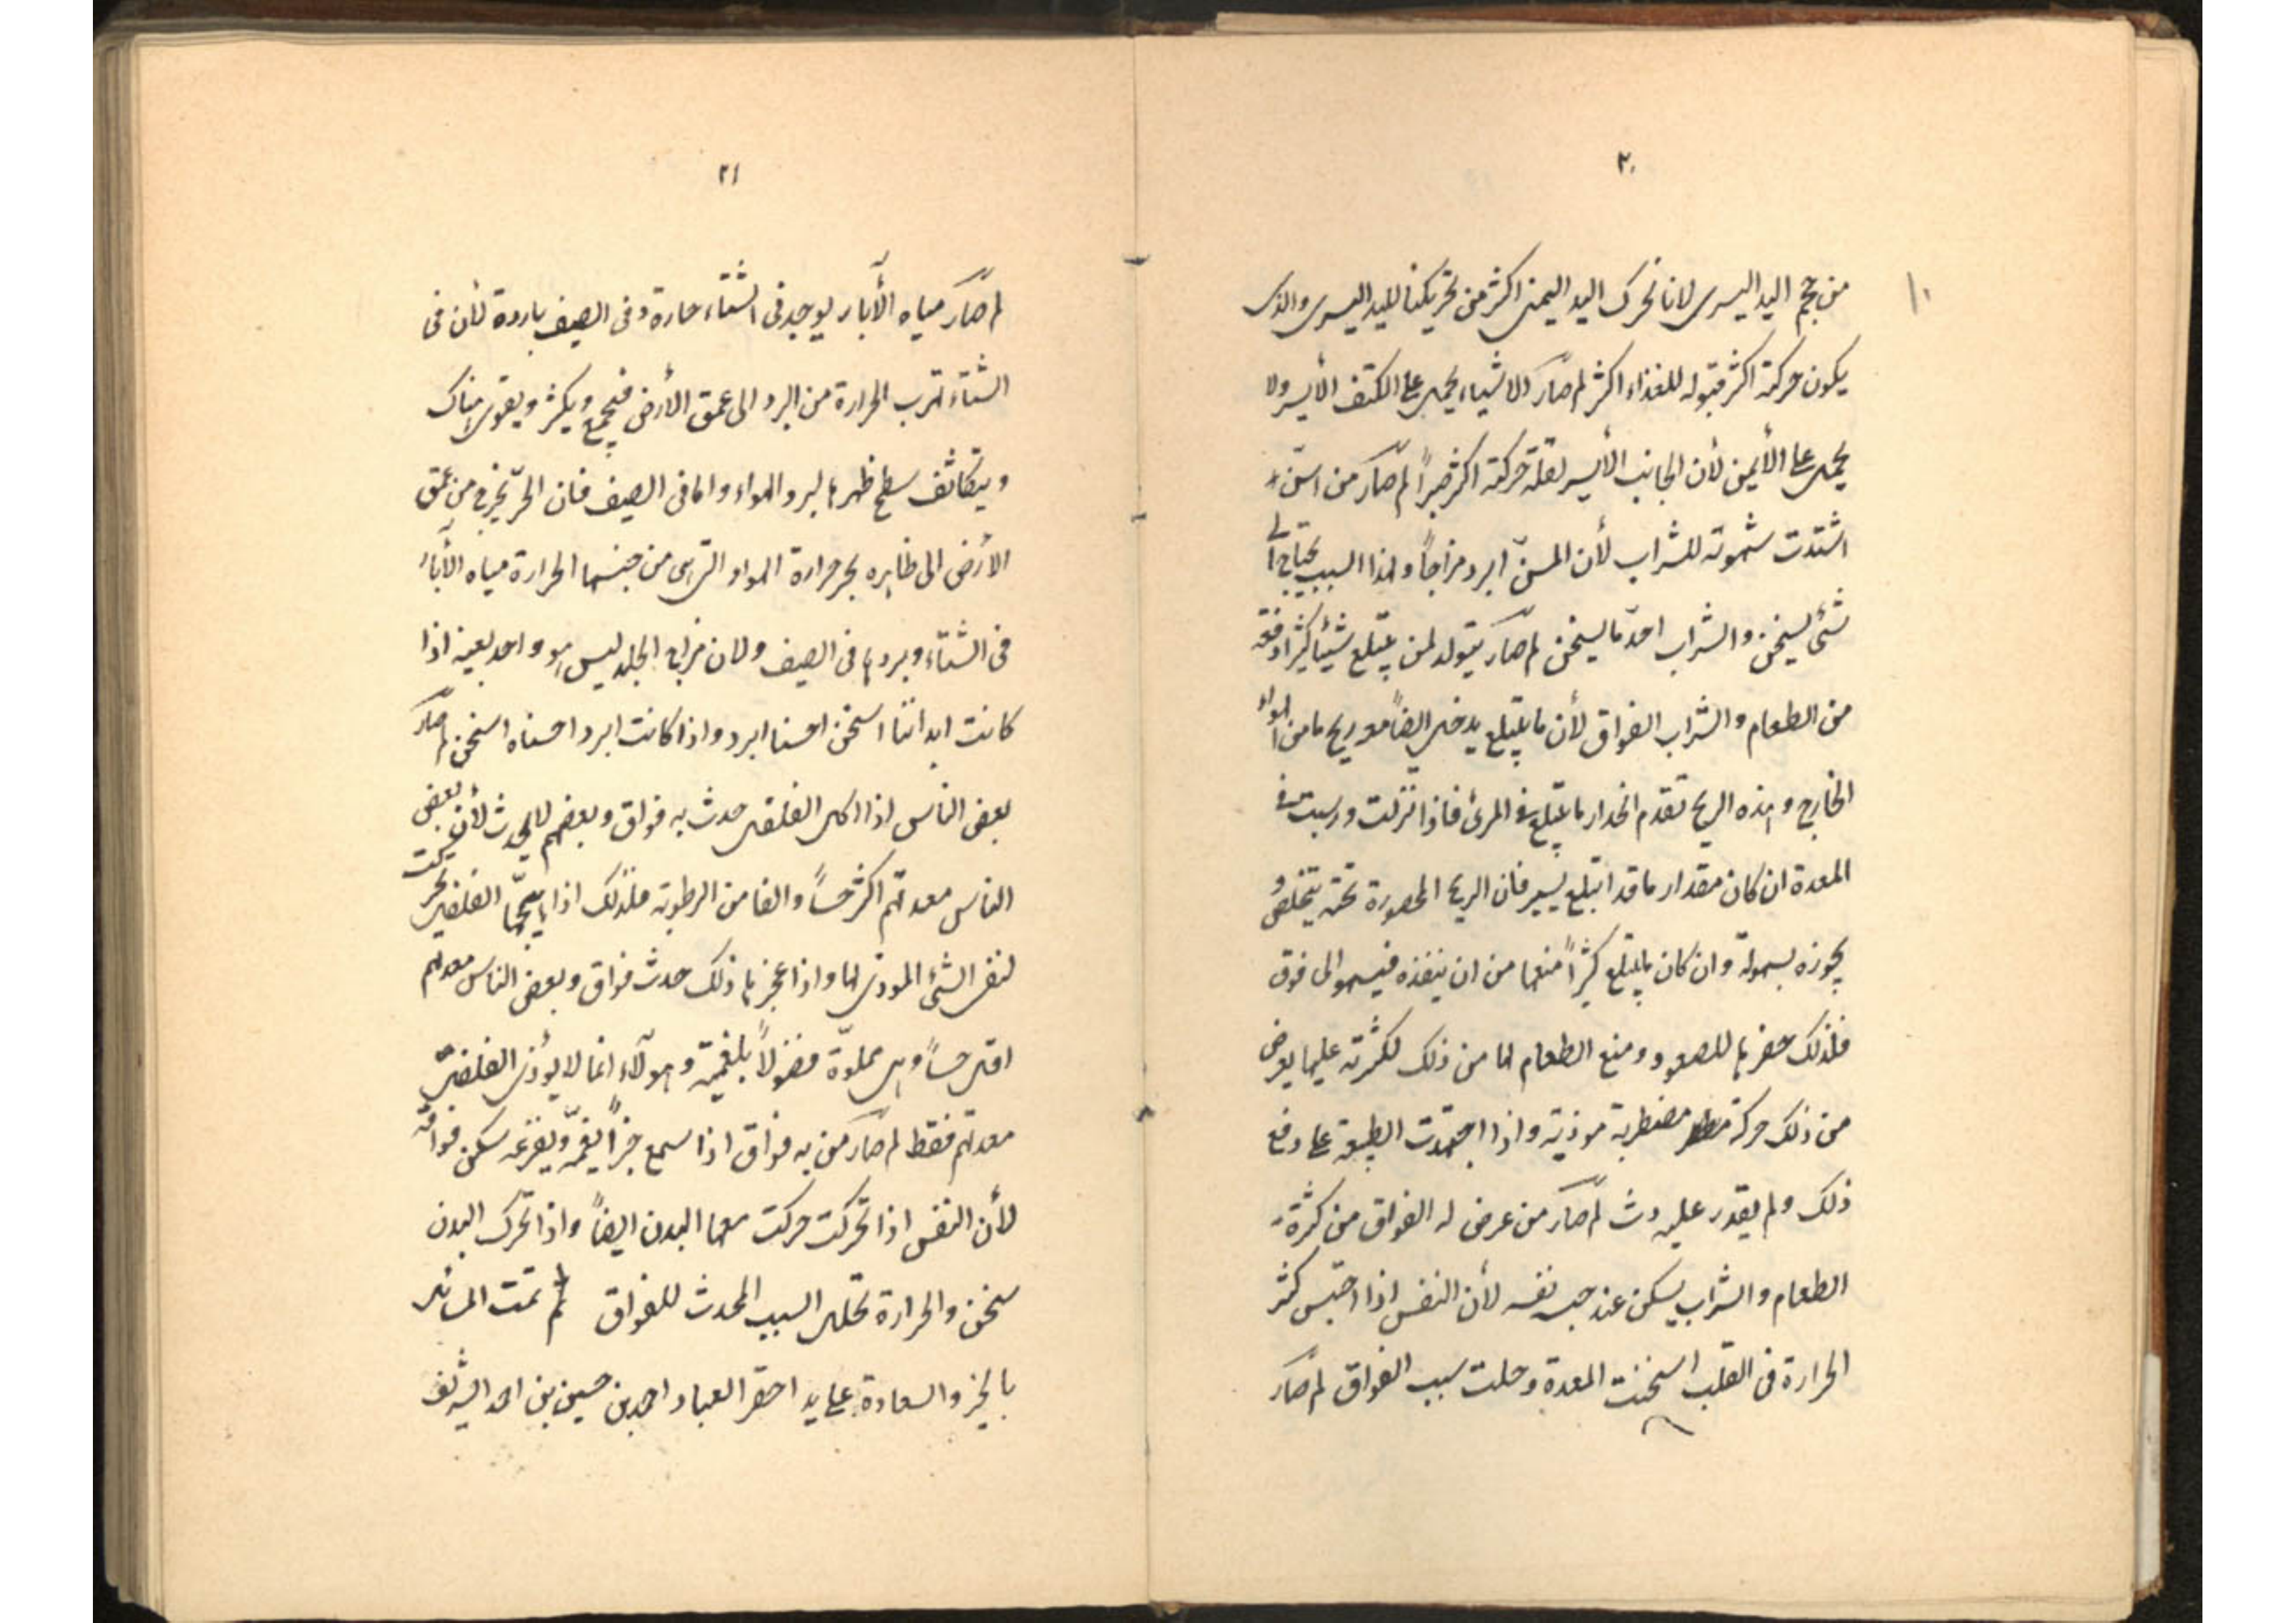 ٢٠
من حجم اليد اليسرى لانا نحرك اليد اليمنى اكثر من تحريكنا لليد اليسرى والذى
يكون حركته اكثر قبوله للغذاء اكثر لم صار الاشياء يحمل على الكتف الأيسر ولا
يحمل على الأيمن لأن الجانب الأيسر لقلة حركته اكثر صبراً لم صار من اسنّ
اشتدت شهوته للشراب لأن المسنّ ابرد مزاجاً ولهذا السبب يحتاج الى
شئ يسخن والشراب احد ما يسخن لم صار يتولد لمن يبتلع شيئا كثيرا دفعة
من الطعام والشراب الفواق لأن ما يبتلع يدخل ايضاً معه ريح ما من الهواء
الخارج وهذه الريح تقدم انحدار ما يبتلع فى المرئ فاذا نزلت ورسبت فى
المعدة ان كان مقدار ما قد ابتلع يسير فان الريح المحصورة تحته يتخلص و
يجوزه بسهولة وان كان ما يبتلع كثيراً منعها من ان ينفذه فيسمو الى فوق
فلذلك حفزها للصعود ومنع الطعام لها من ذلك لكثرته عليها يعرض
من ذلك حركة مضطربة موذية واذا اجتهدت الطبيعة على دفع
ذلك ولم يقدر عليه دث لم صار من عرض له الفواق من كثرة
الطعام والشراب يسكن عند حبس نفسه لأن النفس اذا احتبس كثر
الحرارة فى القلب اسخنت المعدة وحلت سبب الفواق لم صار
٢١
لم صار مياه الآبار يوجد فى الشتاء حارة وفى الصيف باردة لأن فى
الشتاء تهرب الحرارة من البرد الى عمق الأرض فيجمع ويكثر ويقوى هناك
ويتكاثف سطح ظهرها لبرد الهواء واما فى الصيف فان الحرّ يخرج من عمق
الأرض الى ظاهره بحر حرارة الهواء التى هى من جنسها الحرارة مياه الآبار
فى الشتاء وبردها فى الصيف ولان مزاج الجلد ليس هو واحد بعينه اذا
كانت ابداننا اسخن احسنا ابرد واذا كانت ابرد احسناه اسخن لم صار
بعض الناس اذا اكل الفلفل حدث به فواق وبعضهم لا يحدث لأن بعض
الناس معدتهم اكثر حساً والفا من الرطوبة فلذلك اذا يهيجها الفلفل تحركت
لنفض الشئ المودى لها واذا عجزها ذلك حدث فواق وبعض الناس معدتهم
اقل حساً وهى مملوّة فضولاً بلغمية وهولآء انما لا يؤذى الفلفل
معدتهم فقط لم صار من به فواق اذا سمع خبراً يغمّه ويفزعه سكن فواقه
لأن النفس اذا تحركت حركت معها البدن ايضاً واذا تحرك البدن
سخن والحرارة تحلل السبب المحدث للفواق تم تمت المسائل
بالخير والسعادة على يد احقر العباد احمد بن حسين بن احمد الشريف